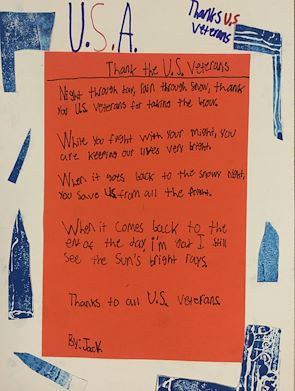 U.S.A.
Thanks U.S
Veterans
Thank the U.S. Veterans
Night through day, rain through snow, thank
you U.S. Veterans for taking the blow.
While you fight with your might, you
are keeping our lives very bright.
When it goes back to the snowy night,
you save us from all the fright.
When it comes back to the
end of the day, I'm glad I still
see the sun's bright rays.
Thanks to all U.S. Veterans
By: Jack